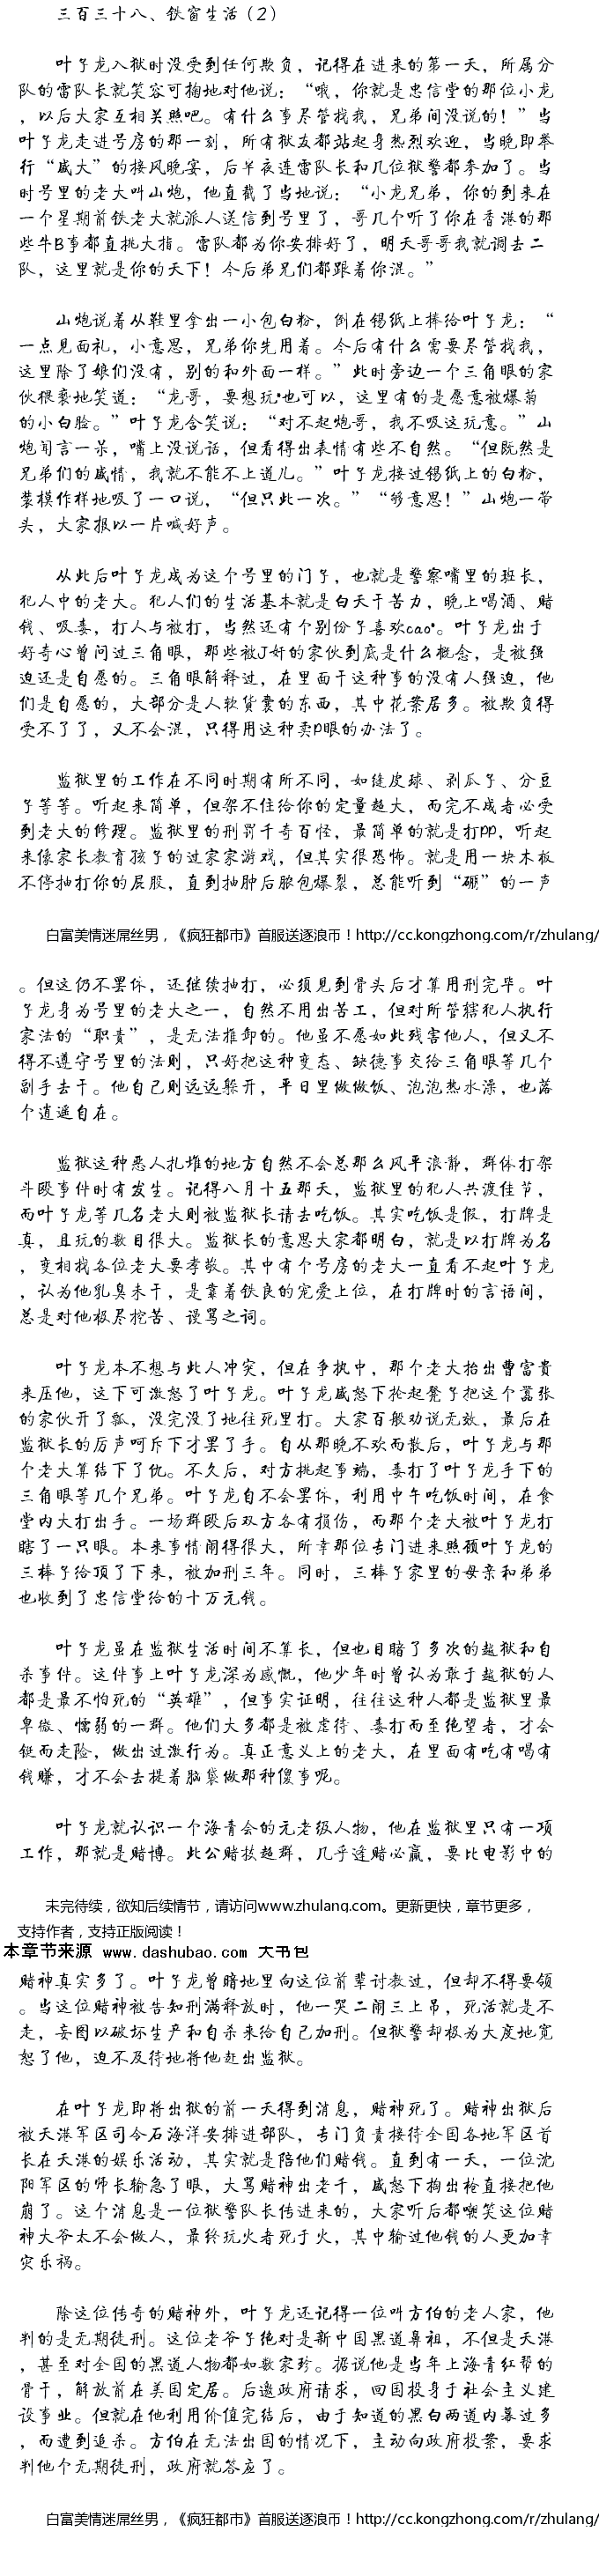 三百三十八、铁窗生活（2）
叶子龙入狱时没受到任何欺负，记得在进来的第一天，所属分
队的雷队长就笑容可掬地对他说：“哦，你就是忠信堂的那位小龙
，以后大家互相关照吧。有什么事尽管找我，兄弟间没说的！”当
叶子龙走进号房的那一刻，所有狱友都站起身热烈欢迎，当晚即举
行“盛大”的接风晚宴，后半夜连雷队长和几位狱警都参加了。当
时号里的老大叫山炮，他直截了当地说：“小龙兄弟，你的到来在
一个星期前铁老大就派人送信到号里了，哥几个听了你在香港的那
些牛B事都直挑大指。雷队都为你安排好了，明天哥哥我就调去二
队，这里就是你的天下！今后弟兄们都跟着你混。”
山炮说着从鞋里拿出一小包白粉，倒在锡纸上捧给叶子龙：“
一点见面礼，小意思，兄弟你先用着。今后有什么需要尽管找我，
这里除了娘们没有，别的和外面一样。”此时旁边一个三角眼的家
伙很亵地笑道：“龙哥，要想玩*也可以，这里有的是愿意被爆菊
的小白脸。”叶子龙含笑说：“对不起炮哥，我不吸这玩意。”山
炮闻言一呆，嘴上没说话，但看得出表情有些不自然。“但既然是
兄弟们的盛情，我就不能不上道儿。”叶子龙接过锡纸上的白粉，
装模作样地吸了一口说，“但只此一次。”“够意思！”山炮一带
头，大家报以一片喊好声。
从此后叶子龙成为这个号里的门子，也就是警察嘴里的班长，
犯人中的老大。犯人们的生活基本就是白天干苦力，晚上喝酒、赌
钱、吸毒，打人与被打，当然还有个别份子喜欢cao*。叶子龙出于
好奇心曾问过三角眼，那些被J奸的家伙到底是什么概念，是被强
迫还是自愿的。三角眼解释过，在里面干这种事的没有人强迫，他
们是自愿的，大部分是人软货囊的东西，其中花案居多。被欺负得
受不了了，又不会混，只得用这种卖P眼的办法了。
监狱里的工作在不同时期有所不同，如缝皮球、剥瓜子、分豆
子等等。听起来简单，但架不住给你的定量超大，而完不成者必受
到老大的修理。监狱里的刑罚千奇百怪，最简单的就是打PP，听起
来像家长教育孩子的过家家游戏，但其实很恐怖。就是用一块木板
不停抽打你的屁股，直到抽肿后脓包爆裂，总能听到“硼”的一声
白富美情迷屌丝男，《疯狂都市》首服送逐浪币！http://cc.kongzhong.com/r/zhulang/
。但这仍不罢休，还继续抽打，必须见到骨头后才算用刑完毕。叶
子龙身为号里的老大之一，自然不用出苦工，但对所管辖犯人执行
家法的“职责”，是无法推卸的。他虽不愿如此残害他人，但又不
得不遵守号里的法则，只好把这种变态、缺德事交给三角眼等几个
副手去干。他自己则远远躲开，平日里做做饭、泡泡热水澡，也落
个逍遥自在。
监狱这种恶人扎堆的地方自然不会总那么风平浪静，群体打架
斗殴事件时有发生。记得八月十五那天，监狱里的犯人共渡佳节，
而叶子龙等几名老大则被监狱长请去吃饭。其实吃饭是假，打牌是
真，且玩的数目很大。监狱长的意思大家都明白，就是以打牌为名
，变相找各位老大要孝敬。其中有个号房的老大一直看不起叶子龙
，认为他乳臭未干，是靠着铁良的宠爱上位，在打牌时的言语间，
总是对他极尽挖苦、谩骂之词。
叶子龙本不想与此人冲突，但在争执中，那个老大抬出曹富贵
来压他，这下可激怒了叶子龙。叶子龙盛怒下抡起凳子把这个嚣张
的家伙开了瓢，没完没了地往死里打。大家百般劝说无效，最后在
监狱长的厉声呵斥下才罢了手。自从那晚不欢而散后，叶子龙与那
个老大算结下了仇。不久后，对方挑起事端，毒打了叶子龙手下的
三角眼等几个兄弟。叶子龙自不会罢休，利用中午吃饭时间，在食
堂内大打出手。一场群殴后双方各有损伤，而那个老大被叶子龙打
瞎了一只眼。本来事情闹得很大，所幸那位专门进来照顾叶子龙的
三棒子给顶了下来，被加刑三年。同时，三棒子家里的母亲和弟弟
也收到了忠信堂给的十万元钱。
叶子龙虽在监狱生活时间不算长，但也目睹了多次的越狱和自
杀事件。这件事上叶子龙深为感慨，他少年时曾认为敢于越狱的人
都是最不怕死的“英雄”，但事实证明，往往这种人都是监狱里最
卑微、懦弱的一群。他们大多都是被虐待、毒打而至绝望者，才会
铤而走险，做出过激行为。真正意义上的老大，在里面有吃有喝有
钱赚，才不会去提着脑袋做那种傻事呢。
叶子龙就认识一个海青会的元老级人物，他在监狱里只有一项
工作，那就是赌博。此公赌技超群，几乎逢赌必赢，要比电影中的
未完待续，欲知后续情节，请访问www.zhulang.com。更新更快，章节更多，
支持作者，支持正版阅读！
本章节来源 www.dashubao.com 大书包
赌神真实多了。叶子龙曾暗地里向这位前辈讨教过，但却不得要领
。当这位赌神被告知刑满释放时，他一哭二闹三上吊，死活就是不
走，妄图以破坏生产和自杀来给自己加刑。但狱警却极为大度地宽
恕了他，迫不及待地将他赶出监狱。
在叶子龙即将出狱的前一天得到消息，赌神死了。赌神出狱后
被天港军区司令石海洋安排进部队，专门负责接待全国各地军区首
长在天港的娱乐活动，其实就是陪他们赌钱。直到有一天，一位沈
阳军区的师长输急了眼，大骂赌神出老千，盛怒下掏出枪直接把他
崩了。这个消息是一位狱警队长传进来的，大家听后都嘲笑这位赌
神大爷太不会做人，最终玩火者死于火，其中输过他钱的人更加幸
灾乐祸。
除这位传奇的赌神外，叶子龙还记得一位叫方伯的老人家，他
判的是无期徒刑。这位老爷子绝对是新中国黑道鼻祖，不但是天港
，甚至对全国的黑道人物都如数家珍。据说他是当年上海青红帮的
骨干，解放前在美国定居。后邀政府请求，回国投身于社会主义建
设事业。但就在他利用价值完结后，由于知道的黑白两道内幕过多
，而遭到追杀。方伯在无法出国的情况下，主动向政府投案，要求
判他个无期徒刑，政府就答应了。
白富美情迷屌丝男，《疯狂都市》首服送逐浪币！http://cc.kongzhong.com/r/zhulang/